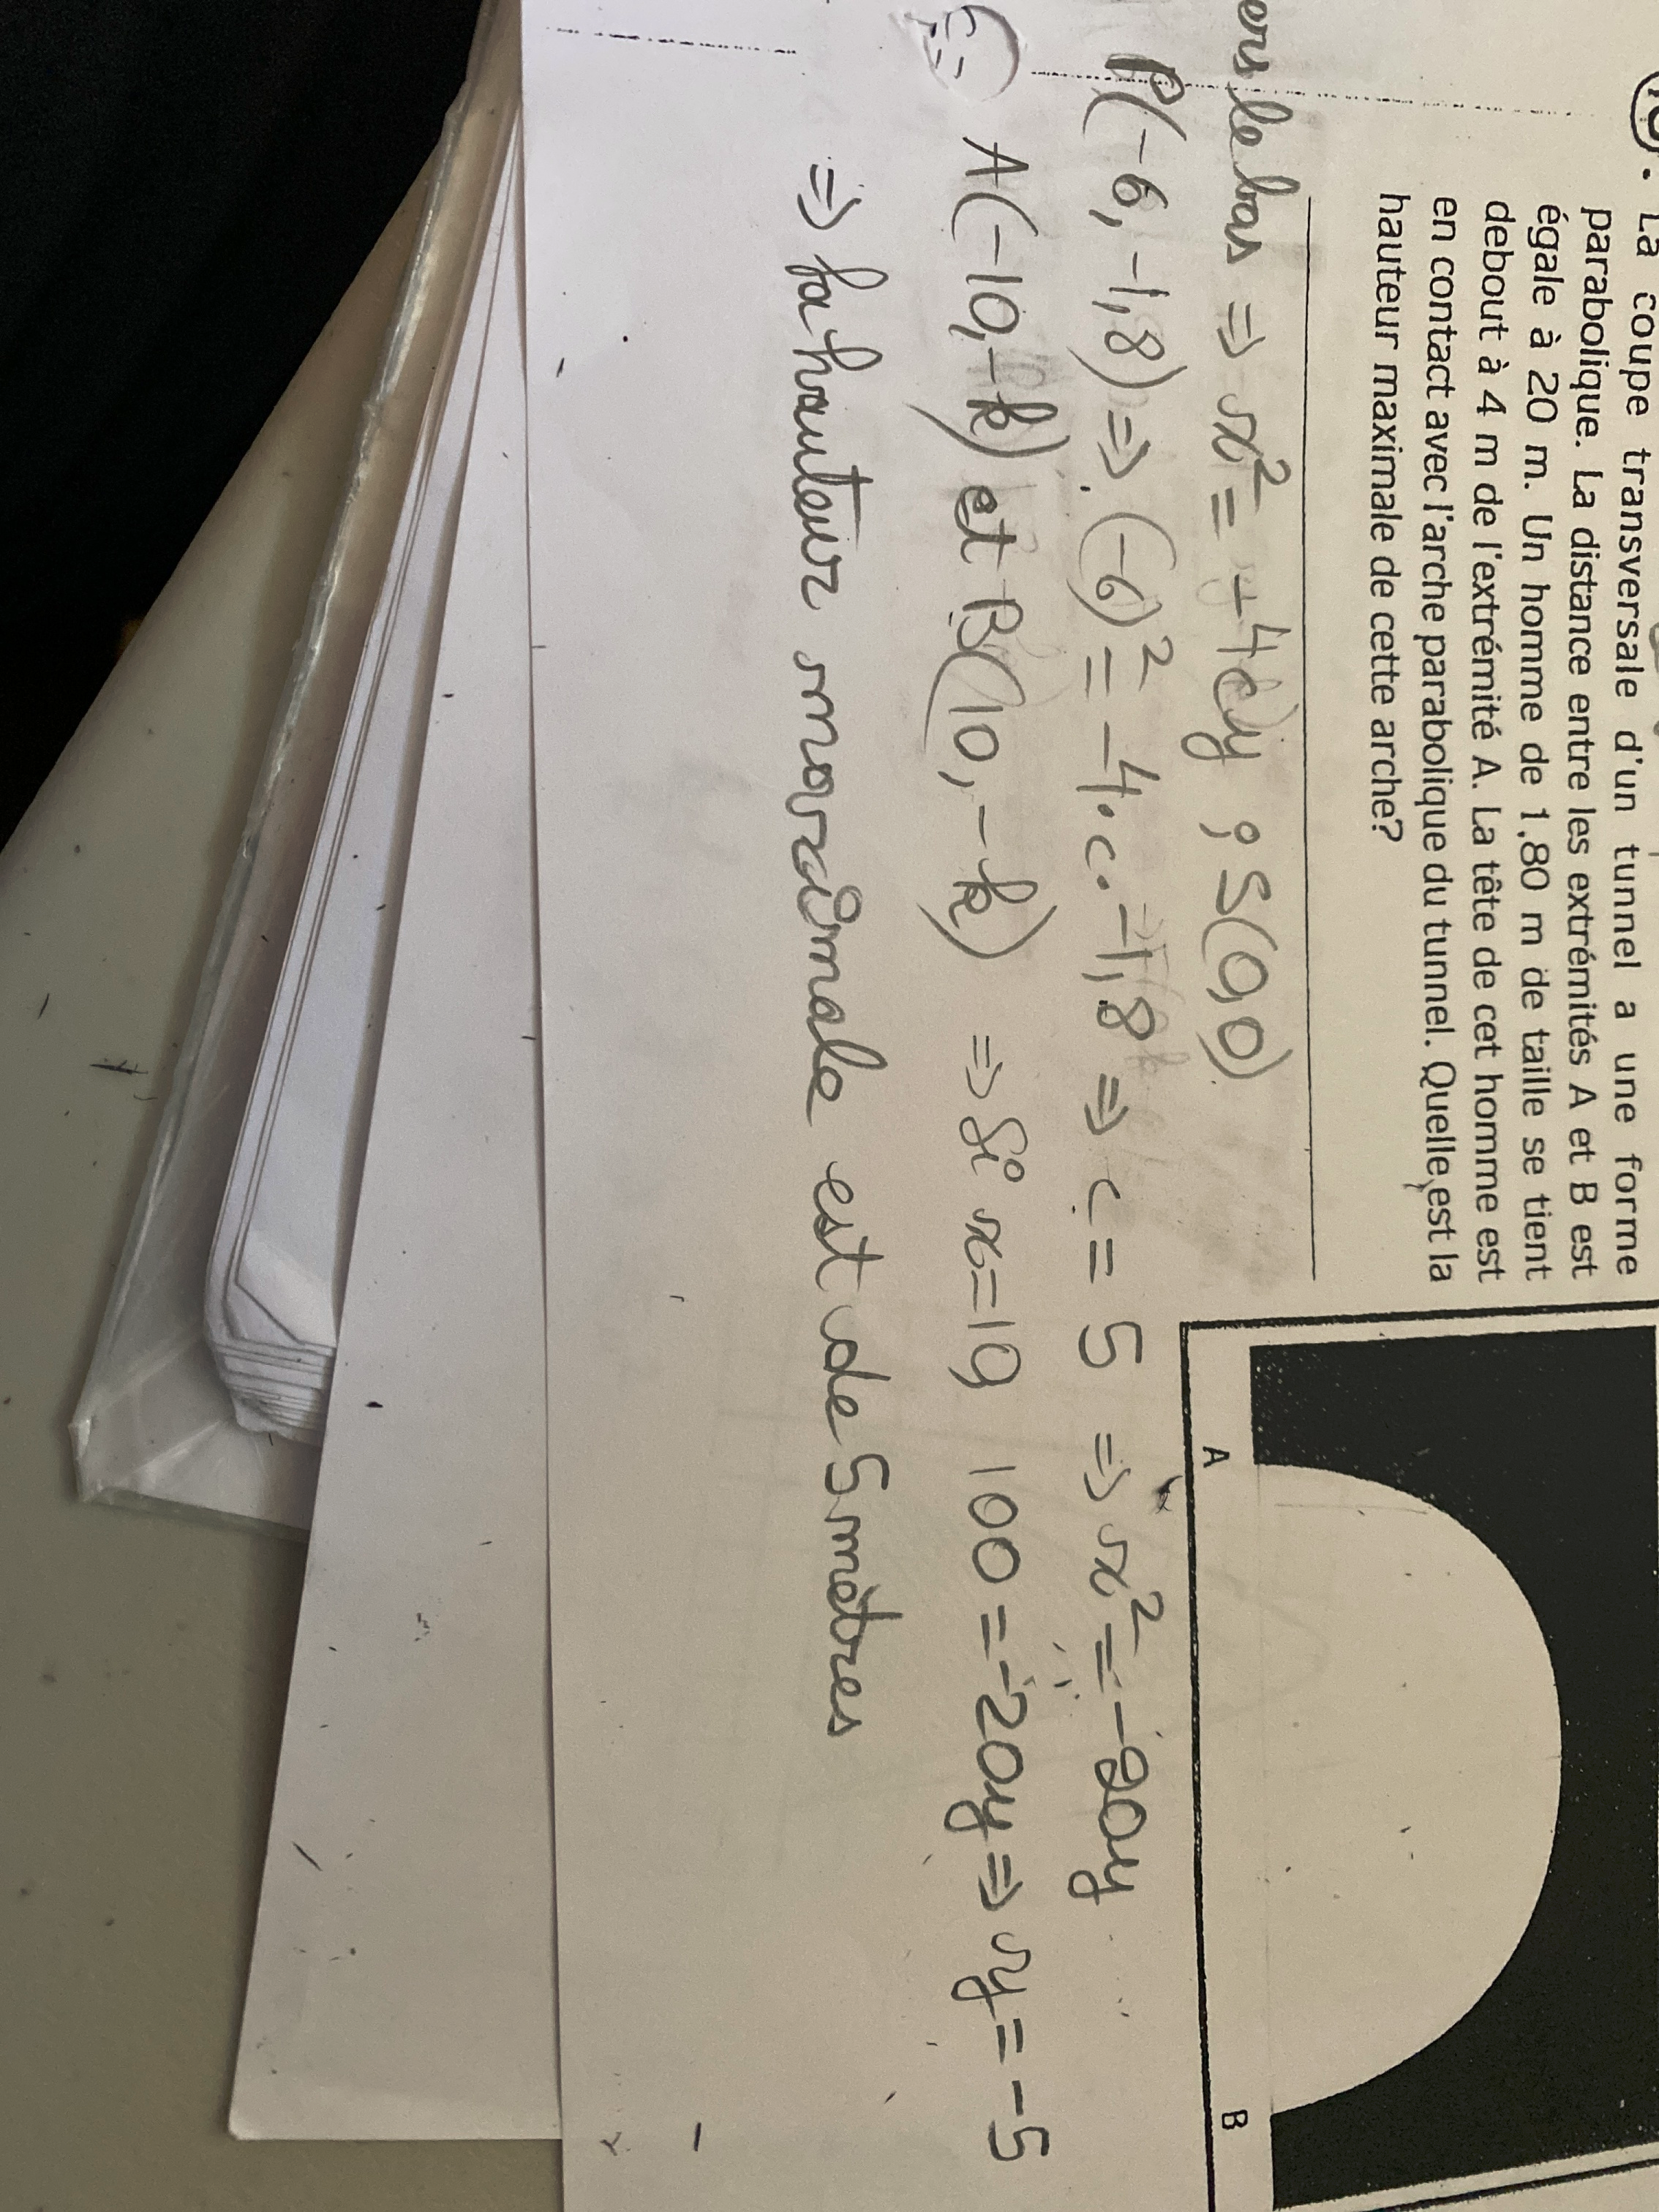 La coupe transversale d'un tunnel a une forme
parabolique. La distance entre les extrémités A et B est
égale à 20 m. Un homme de 1,80 m de taille se tient
debout à 4 m de l'extrémité A. La tête de cet homme est
en contact avec l'arche parabolique du tunnel. Quelle est la
hauteur maximale de cette arche?
A
B
ers le bas => x² = -4cy ; S(0,0)
P(-6, -1,8) => (-6)² = -4·c·-1,8 => c = 5 => x² = -20y
A(-10, -k) et B(10, -k) => Si x=10, 100 = -20y => y = -5
=> la hauteur maximale est de 5 mètres